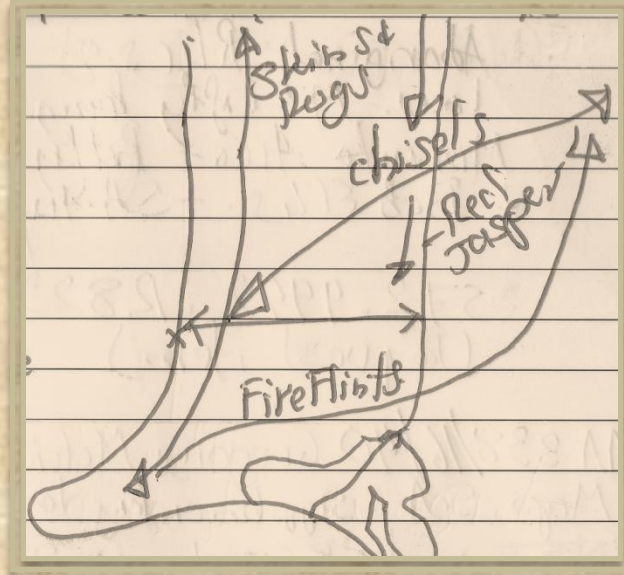 Skins &
Rugs
chisels
Red
Jasper
Fire Flints